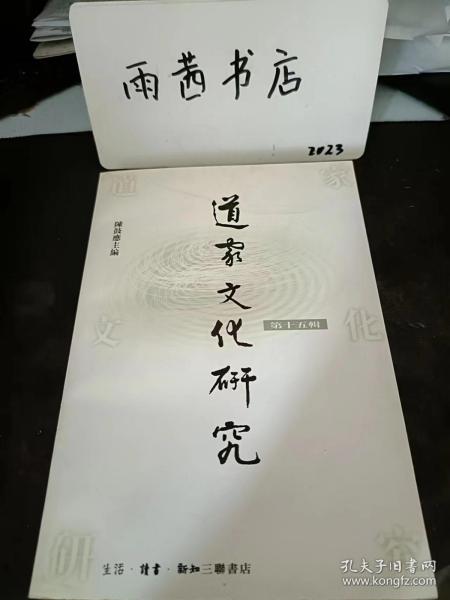 雨茜书店
2023
道 家
陳鼓應主編
道家文化研究
第十五輯
文 化
研 究
生活·讀書·新知三聯書店
孔夫子旧书网
www.kongfz.com